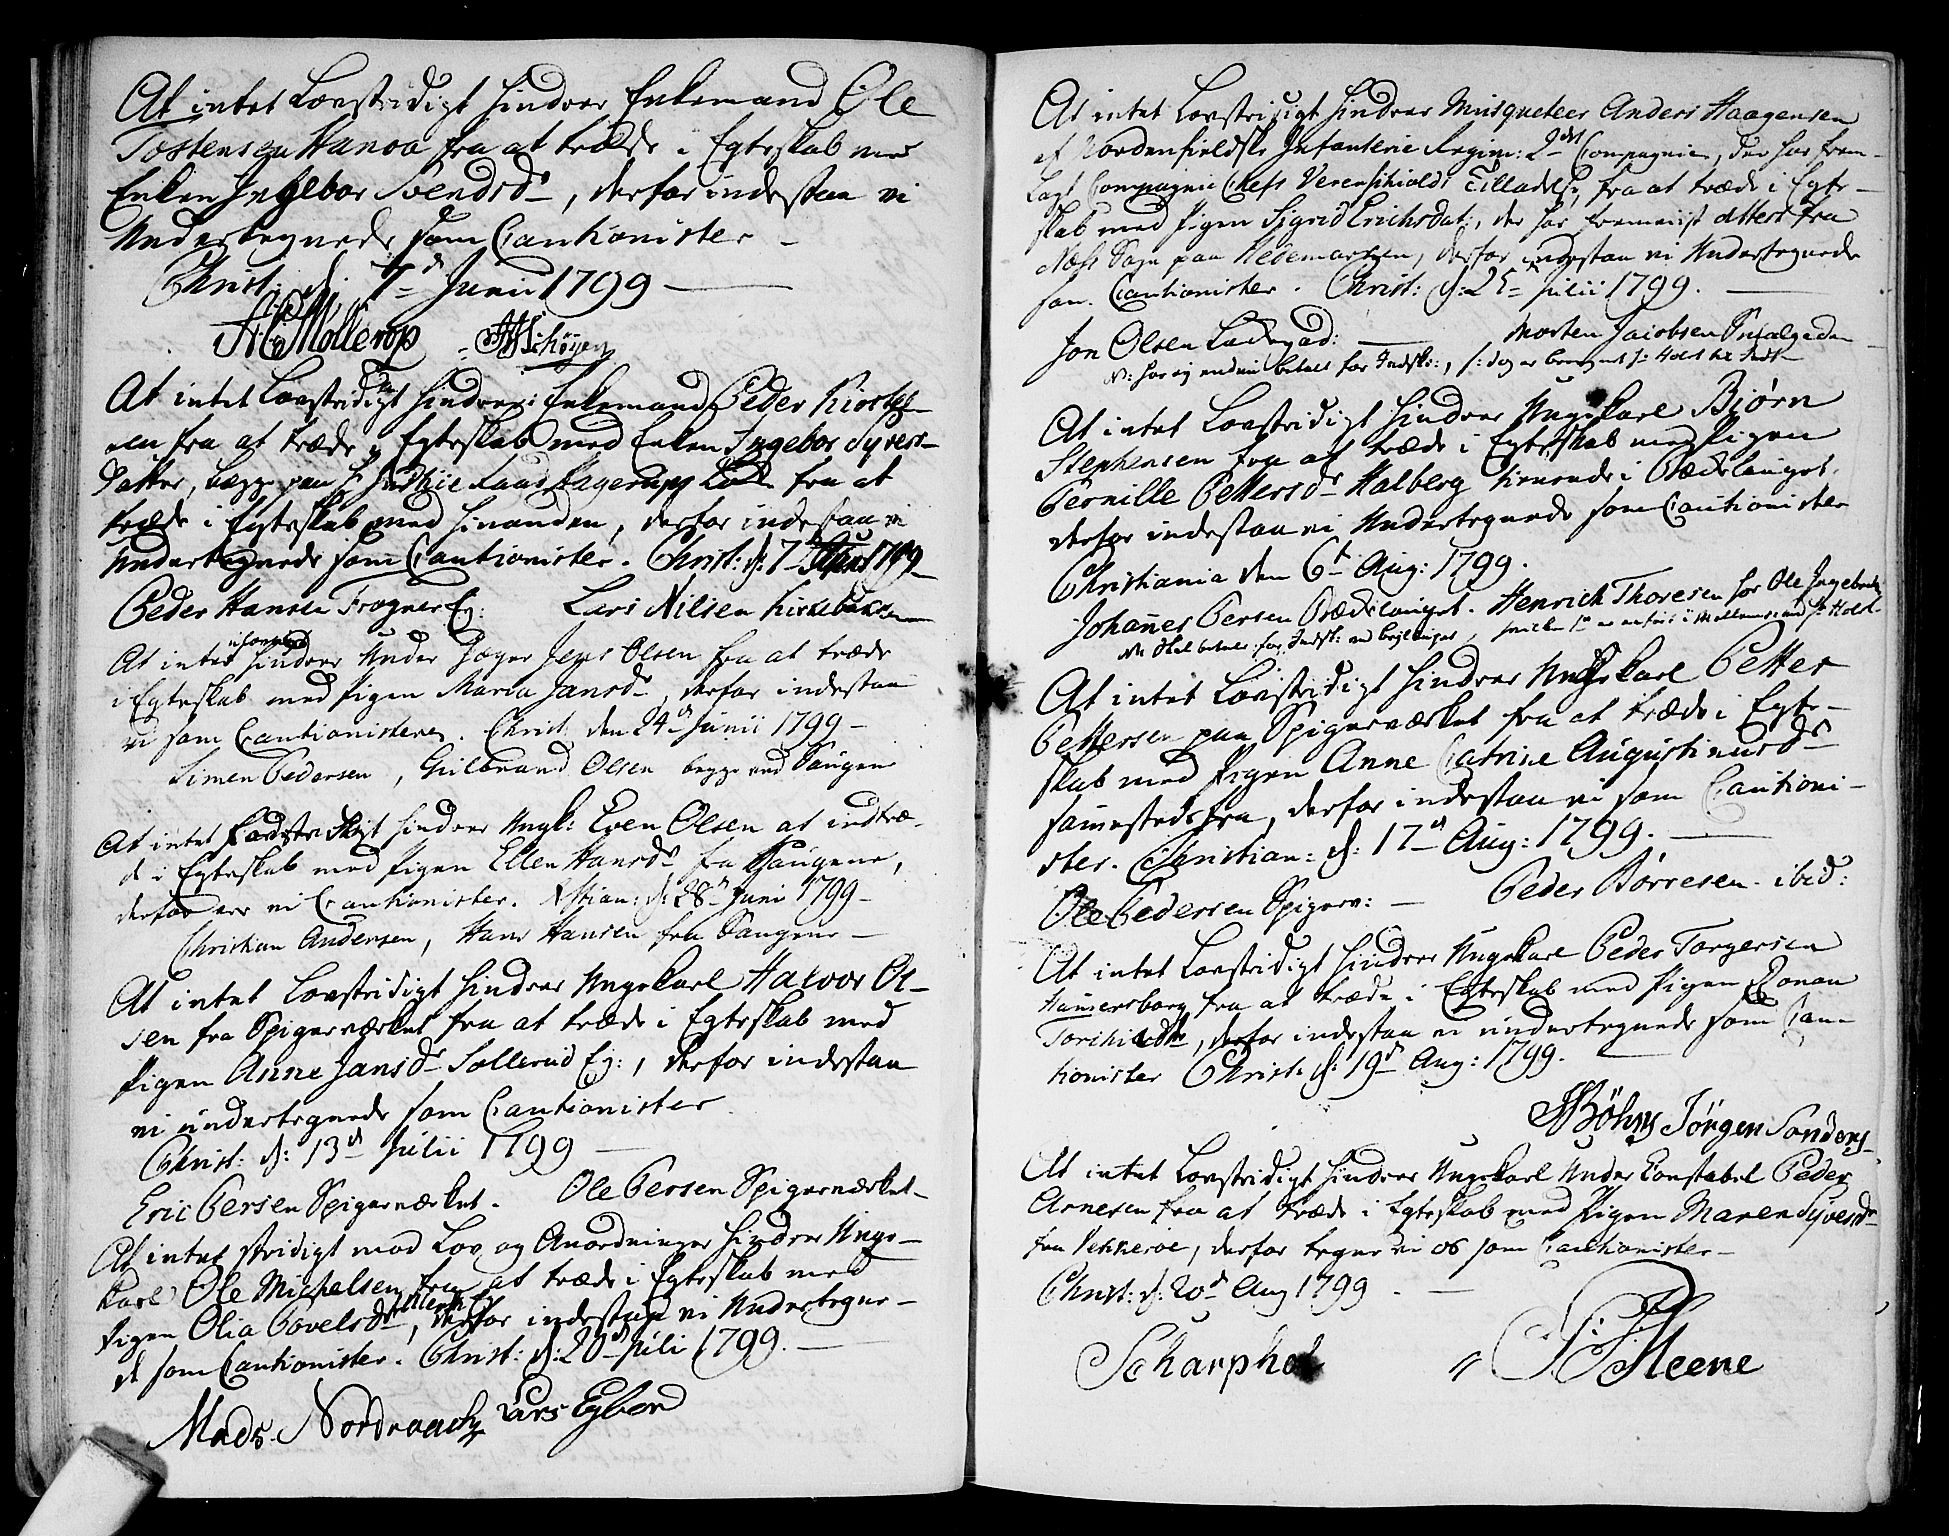 At intet Lovstridigt hindrer Enkemand Ole
Tostensen Hanoa fra at træde i Egteskab med
Enken Ingebor Svendsdr, derfor indestaa vi
Undertegnede som Cautionister –
Christ: d: 7d Junii 1799 –
Møllerop Schøyen
At intet Lovstridigt hindrer Enkemand Peder
fra at træde i Egteskab med Enken Ingebor Syvers-
datter, begge paa fra at
træde i Egteskab med hinanden, derfor indestaa vi
Undertegnede som Cautionister. Christ: d: 7 1799
Peder Hansen Frogner Eg: Lars Nilsen
At intet hindrer Under Jæger Jens Olsen fra at træde
i Egteskab med Pigen Maria Jansdr, derfor indestaa
vi som Cautionistere. Christ. den 24d Junii 1799 –
Simen Pedersen, Gulbrand Olsen begge ved Saugene
At intet Lovstridigt hindrer Ungk: Even Olsen at indtræ-
de i Egteskab med Pigen Ellen Hansdr fra Saugene,
derfor ere vi Cautionister. Xstian: d: 28d Juni 1799 –
Christian Andersen, Hans Hansen fra Saugene –
At intet Lovstridigt hindrer Ungekarl Halvor Ol-
sen fra Spigerværket fra at træde i Egteskab med
Pigen Anne Jansdr Sollerud Eg:, derfor indestaa
vi undertegnede som Cautionister.
Christ: d: 13d Julii 1799 –
Eric Persen Spigerværket. Ole Persen Spigerværket –
At intet stridigt mod Lov og Anordninger hindrer Unge-
karl Ole Michelsen fra at træde i Egteskab med
Pigen Olia Povelsdr, derfor indestaa vi Undertegne-
de som Cautionister. Christ: d: 20d Juli 1799. –
Mads Nordraach Lars
At intet Lovstridigt hindrer Musqueteer Anders Haagensen
af Nordenfieldske Infanterie Regim: 2det Compagnie, der har frem-
lagt Compagnie Chefs Tilladelse, fra at træde i Egte-
skab med Pigen Sigrid Erichsdat:, der har fremviist Attest fra
Næss Sogn paa Hedemarken, derfor indestaa vi Undertegnede
som Cautionister. Christ: d: 25 Julii 1799. –
Jon Olsen Ladegad: – Morten Jacobsen
At intet Lovstridigt hindrer Ungekarl Bjørn
Stephensen fra at træde i Egteskab med Pigen
Pernille Pettersdr Halberg tienende i Brædelauget.
derfor indestaa vi Undertegnede som Cautionister
Christiania den 6t Aug: 1799.
Johannes Persen Brædelauget. Henrich Thoresen for Ole
At intet Lovstridigt hindrer Ungekarl Petter
Pettersen paa Spigerværket fra at træde i Egte-
skab med Pigen Anne Catrine Augustinusdr
sammestedsfra, derfor indestaa vi som Cautioni-
ster. Christian: d: 17d Aug: 1799. –
Ole Pedersen Spigerv: – Peder Børresen. ibid:
At intet Lovstridigt hindrer Ungekarl Peder Torgersen
Hausersborg fra at træde i Egteskab med Pigen
derfor indestaa vi undertegnede som Cau-
tionister Christ. d: 19d Aug: 1799.
Jørgen
At intet Lovstridigt hindrer Ungekarl Under Constabel Peder
Arnesen fra at træde i Egteskab med Pigen Maren Syversdr
fra Vekkeroe, derfor tegne vi os som Cautionister –
Christ: d: 20d Aug 1799. –